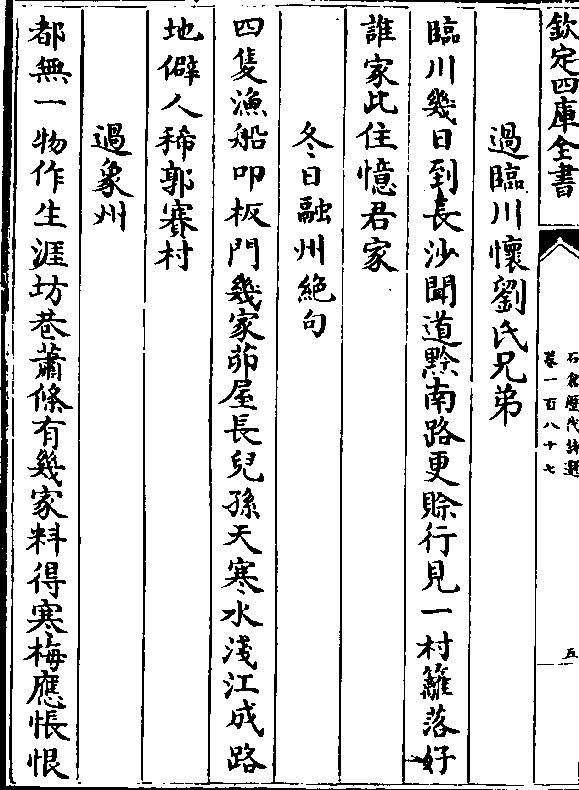 欽定四庫全書
石倉歷代詩選
卷一百八十七
五
過臨川懷劉氏兄弟
臨川幾日到長沙聞道黔南路更賒行見一村籬落好
誰家比住憶君家
冬日融州絕句
四隻漁船叩板門幾家茆屋長兒孫天寒水淺江成路
地僻人稀郭賽村
過象州
都無一物作生涯坊巷蕭條有幾家料得寒梅應悵恨